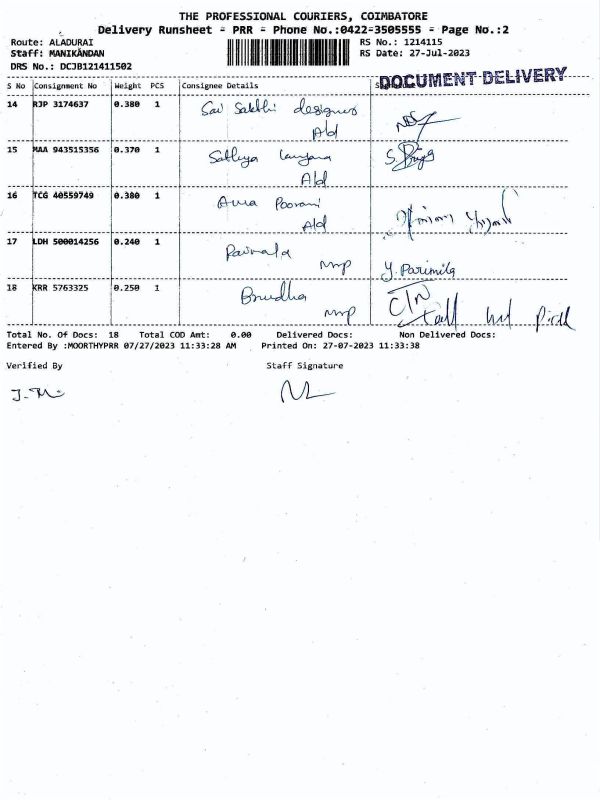 THE PROFESSIONAL COURIERS, COIMBATORE
Delivery Runsheet = PRR = Phone No.:0422-3505555 = Page No.:2
Route: ALADURAI RS No.: 1214115
Staff: MANIKANDAN RS Date: 27-Jul-2023
DRS No.: DCJB121411502
DOCUMENT DELIVERY
S No Consignment No Weight PCS Consignee Details
14 RJP 3174637 0.380 1 Sai Sakthi designer
Ald
15 MAA 943515356 0.370 1 Sathya
Ald
16 TCG 40559749 0.380 1 Poorani
Ald
17 LDH 500014256 0.240 1
mmp Y. Parimila
18 KRR 5763325 0.250 1 Brudha C/N
mmp Call not Pick
Total No. Of Docs: 18 Total COD Amt: 0.00 Delivered Docs: Non Delivered Docs:
Entered By :MOORTHYPRR 07/27/2023 11:33:28 AM Printed On: 27-07-2023 11:33:38
Verified By Staff Signature